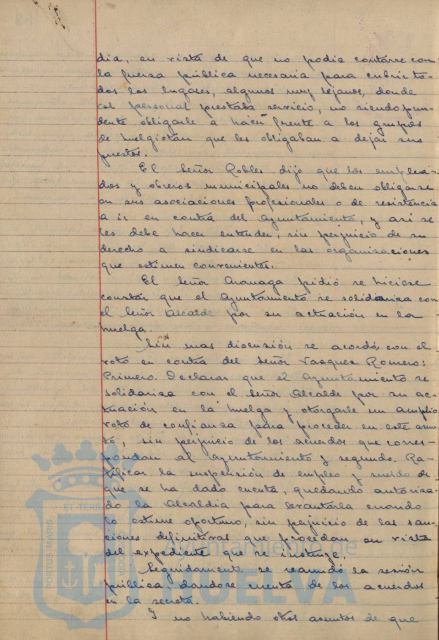 dia, en vista de que no podia contarse con
la fuerza pública necesaria para cubrir to-
dos los lugares, algunos muy lejanos, donde
el personal prestaba servicio, no siendo pru-
dente obligarle a hacer frente a los grupos
de huelguistas que les obligaban a dejar sus
puestos.
El Señor Robles dijo que los emplea-
dos y obreros municipales no deben obligarse
en sus asociaciones profesionales o de resistencia
a ir en contra del Ayuntamiento, y asi se
les debe hacer entender, sin perjuicio de su
derecho a sindicarse en las organizaciones
que estimen convenientes.
El Señor pidió se hiciese
constar que el Ayuntamiento se solidariza con
el Señor Alcalde por su actuación en la
huelga.
Sin mas discusión se acordó con el
voto en contra del Señor Vasquez Romero:
Primero. Declarar que el Ayuntamiento se
solidariza con el Señor Alcalde por su ac-
tuación en la huelga y otorgarle un amplio
voto de confianza para proceder en este asun-
to, sin perjuicio de los acuerdos que corres-
pondan al Ayuntamiento y segundo. Ra-
tificar la suspensión de empleo y sueldo de
que se ha dado cuenta, quedando autoriza-
do la Alcaldia para levantarla cuando
lo estime oportuno, sin perjuicio de las san-
ciones definitivas que procedan en vista
del expediente que se instruye.
Seguidamente se reanudó la sesión
pública dandose cuenta de los acuerdos
en la secreta.
Y no habiendo otros asuntos de que
HUELVA